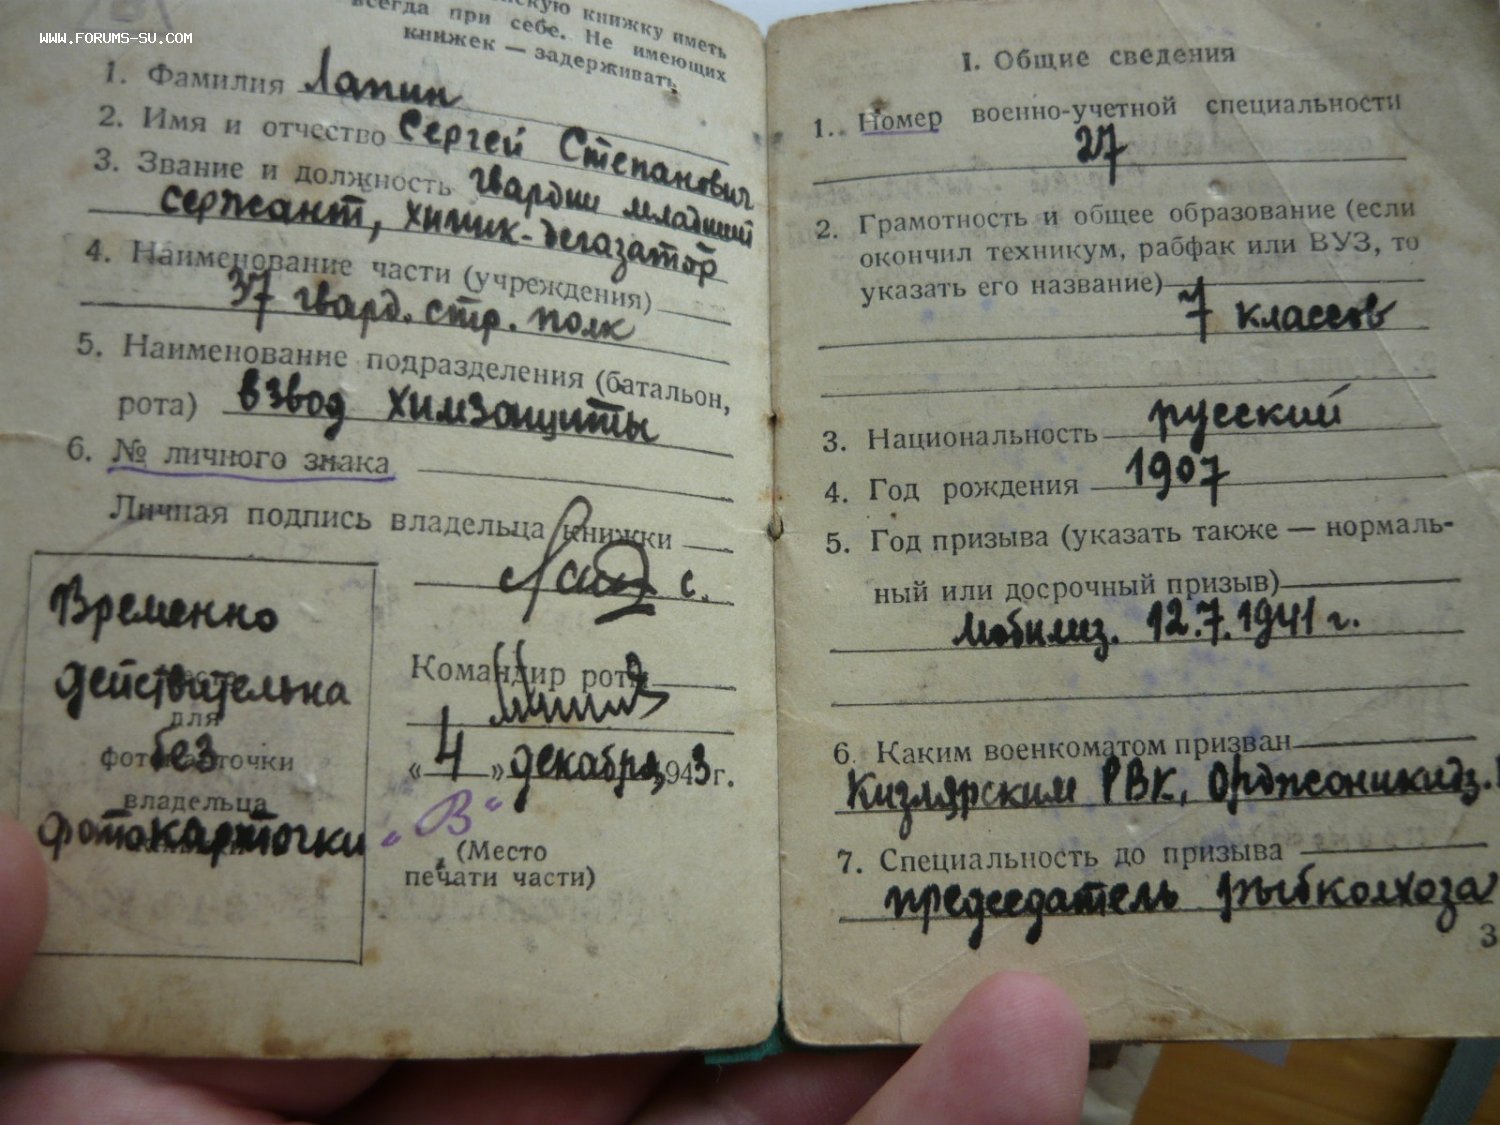 WWW.FORUMS-SU.COM
книжку иметь
всегда при себе. Не имеющих
книжек — задерживать
1. Фамилия Лапин
2. Имя и отчество Сергей Степанович
3. Звание и должность гвардии младший
сержант, химик-дегазатор
4. Наименование части (учреждения)
37 гвард. стр. полк
5. Наименование подразделения (батальон,
рота) взвод химзащиты
6. № личного знака
Личная подпись владельца книжки
с.
Командир роты
«4» декабря 1943 г.
"В"
(Место
печати части)
Временно
действительна
для
без
фотокарточки
владельца
фотокарточки
I. Общие сведения
1. Номер военно-учетной специальности
27
2. Грамотность и общее образование (если
окончил техникум, рабфак или ВУЗ, то
указать его название)
7 классов
3. Национальность русский
4. Год рождения 1907
5. Год призыва (указать также — нормаль-
ный или досрочный призыв)
Мобилиз. 12.7.1941 г.
6. Каким военкоматом призван
Кизлярским РВК, Орджоникидз.
7. Специальность до призыва
председатель рыбколхоза
3